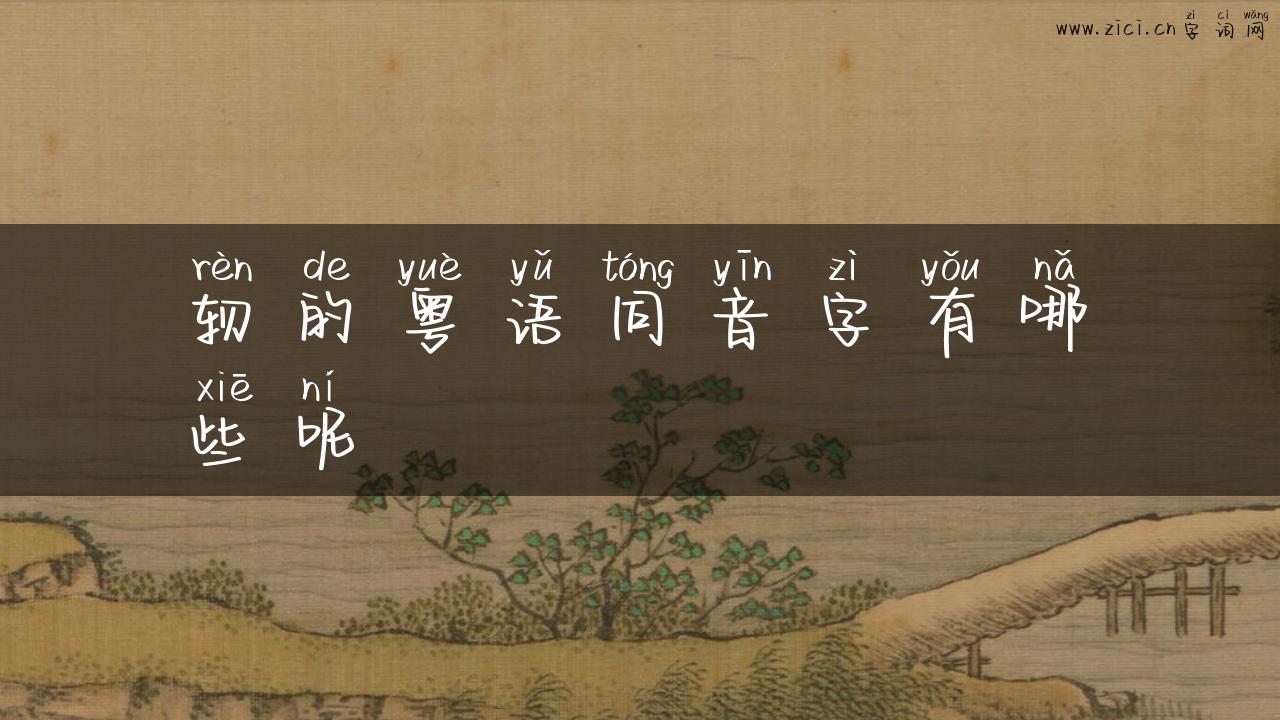 www.zici.cn zì cí wǎng
字词网
rèn de yuè yǔ tóng yīn zì yǒu nǎ
轫的粤语同音字有哪
xiē ní
些呢